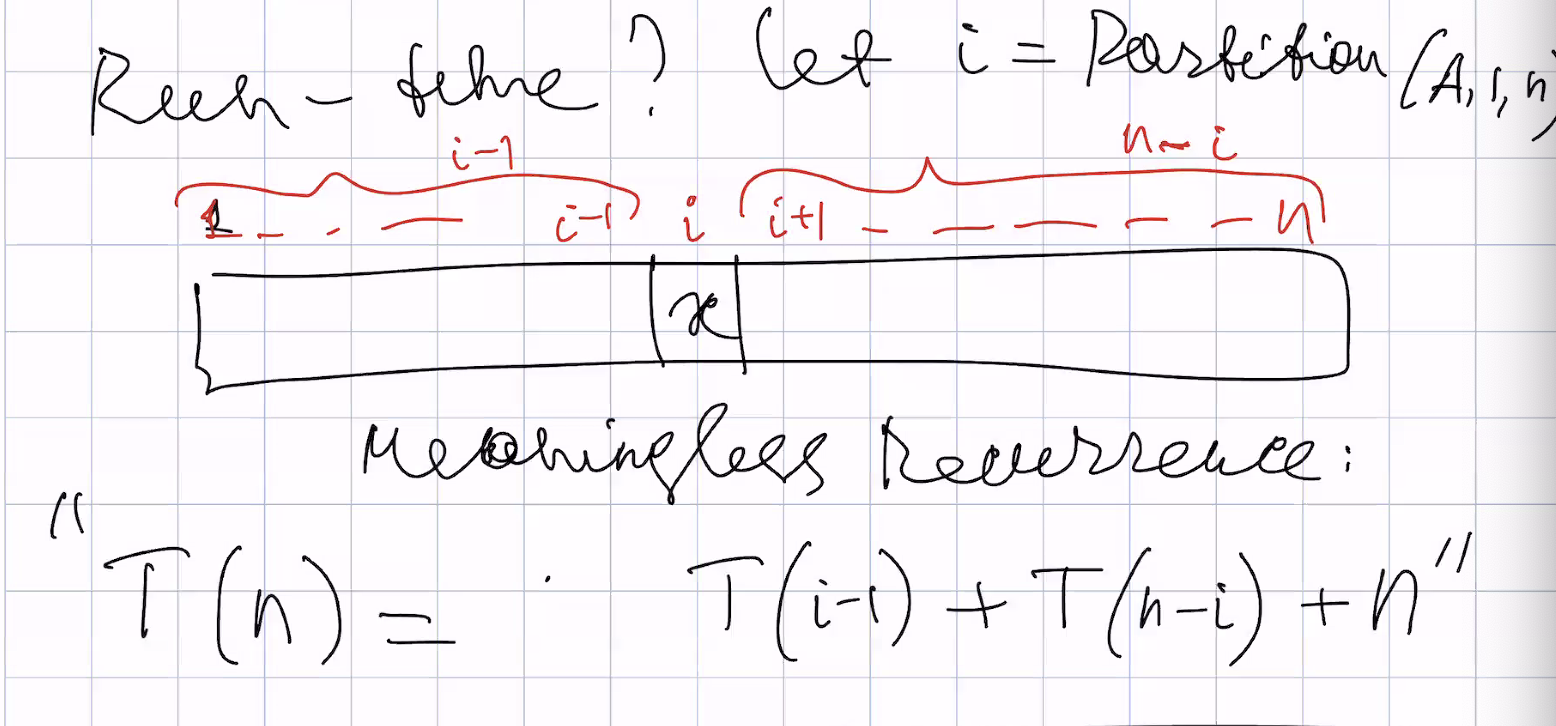 Run-time? Let i = Partition (A, 1, n)
i-1 n-i
1 - - - i-1 i i+1 - - - - - n
x
Meaningless Recurrence:
"T(n) = T(i-1) + T(n-i) + n"